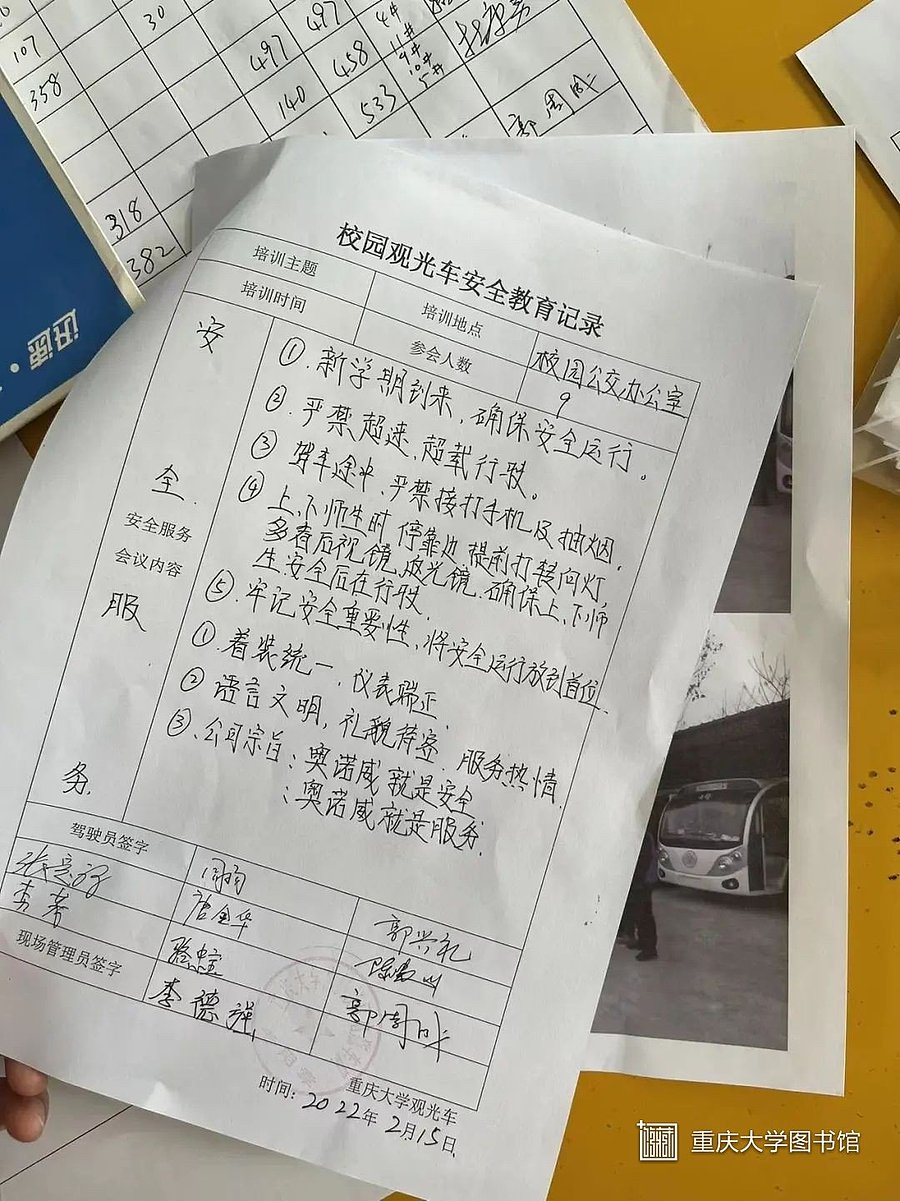 107
30
497
497
4#
11#
9#
10#
5#
358
458
140
533
郭周成
318
382
迅速·
校园观光车安全教育记录
培训主题
培训地点
校园公交办公室
培训时间
参会人数
9
安
全
安全服务
会议内容
服
务.
①.新学期到来,确保安全运行。
②.严禁超速.超载行驶。
③ 驾车途中.严禁接打手机及抽烟.
④ 上.下师生时 停靠边 提前打转向灯
多看后视镜.反光镜.确保上.下师
生安全后在行驶.
⑤.牢记安全重要性,将安全运行放到首位.
①.着装统一.仪表端正.
② 语言文明,礼貌待客.服务热情.
③.公司宗旨:奥诺威就是安全
:奥诺威就是服务.
驾驶员签字
唐全华
郭兴礼
现场管理员签字
李德强
郭周成
重庆大学观光车
时间:2022年2月15日.
重庆大学图书馆